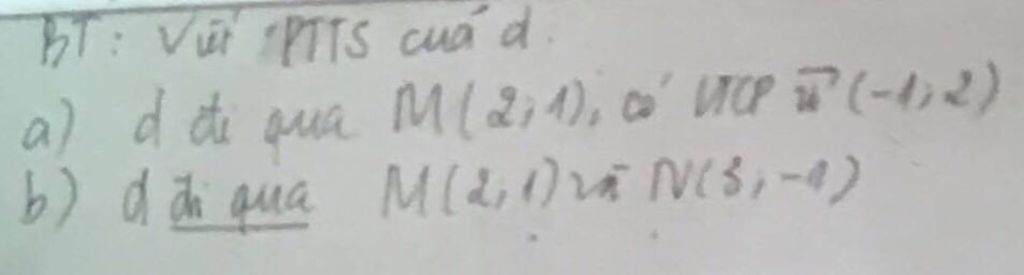 BT: Viết PTTS của d.
a) d đi qua M(2;1), có VTCP u⃗(-1;2)
b) d đi qua M(2,1) và N(3,-1)